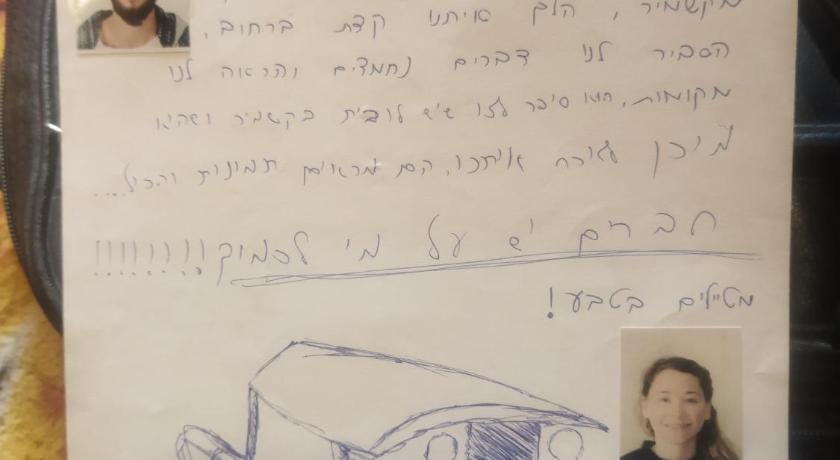 מקשמיר, הלך איתנו קצת ברחוב,
הסביר לנו דברים נחמדים והראה לנו
מקומות, הוא סיפר לנו שיש לו בית בקשמיר ושהוא
מוכן אותנו, הם מראים תמונות והכל....
חברים יש על מי לסמוך!!!!!!!!
מטיילים בטבע!